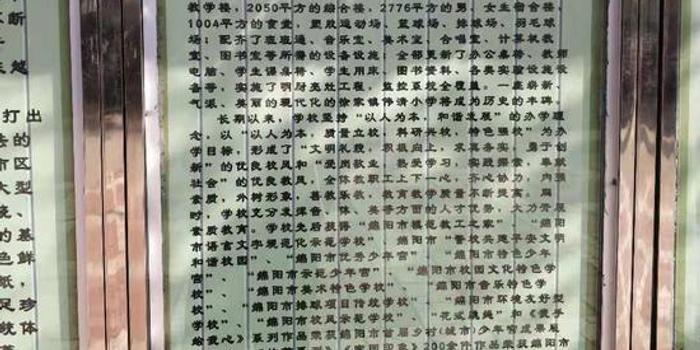 教学楼，2050平方的综合楼，2776平方的男、女生宿舍楼，
1004平方的食堂，塑胶运动场、篮球场、排球场、羽毛球
场；配齐了班班通、音乐室、美术室、合唱室、计算机教
室、图书室等所需的设备设施；全部更新了办公桌椅、教师
电脑、学生课桌椅、学生用床、图书资料、各类实验设施设
备等，实施了明厨亮灶工程，监控系统全覆盖。一座崭新、
气派、美丽的现代化的徐家镇伟清小学将成为历史的丰碑。
长期以来，学校坚持“以人为本，和谐发展”的办学理
念，以“以人为本，质量立校，科研兴校，特色强校”为办
学目标，形成了“文明礼貌，积极向上，求真务实，勇于创
新”的优良校风和“爱岗敬业，热爱学习，实践探索，奉献
社会”的优良教风，全体教职工上下一心，齐心协力，内强
素质，外树形象，喜教乐教，教育教学质量不断提高。同
时，学校充分发挥音、体、美等方面的人才优势，大力开展
素质教育。学校先后获得“绵阳市模范教工之家”、“绵阳
市语言文字规范化示范学校”、“绵阳市“警校共建平安文明
和谐校园”、“绵阳市优秀少年宫”、“绵阳市特色少年
宫”、“绵阳市示范少年宫”、“绵阳市校园文化特色学
校”、“绵阳市美术特色学校”、“绵阳市音乐特色学
校”、“绵阳市排球项目传统学校”、“绵阳市环境友好型
学校”、“绵阳市校风示范学校”、“花式跳绳”和《我手
绘我心》系列作品荣获绵阳市首届乡村(城市)少年宫成果展
200余件作品荣获绵阳市
不断
打出
的
市区
大型
的基
色鲜
足珍
体